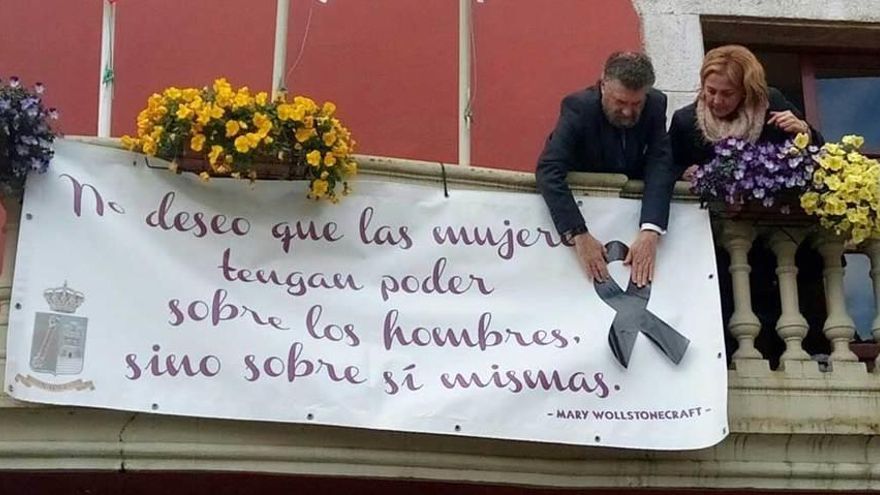 No deseo que las mujeres
tengan poder
sobre los hombres,
sino sobre sí mismas.
- MARY WOLLSTONECRAFT -